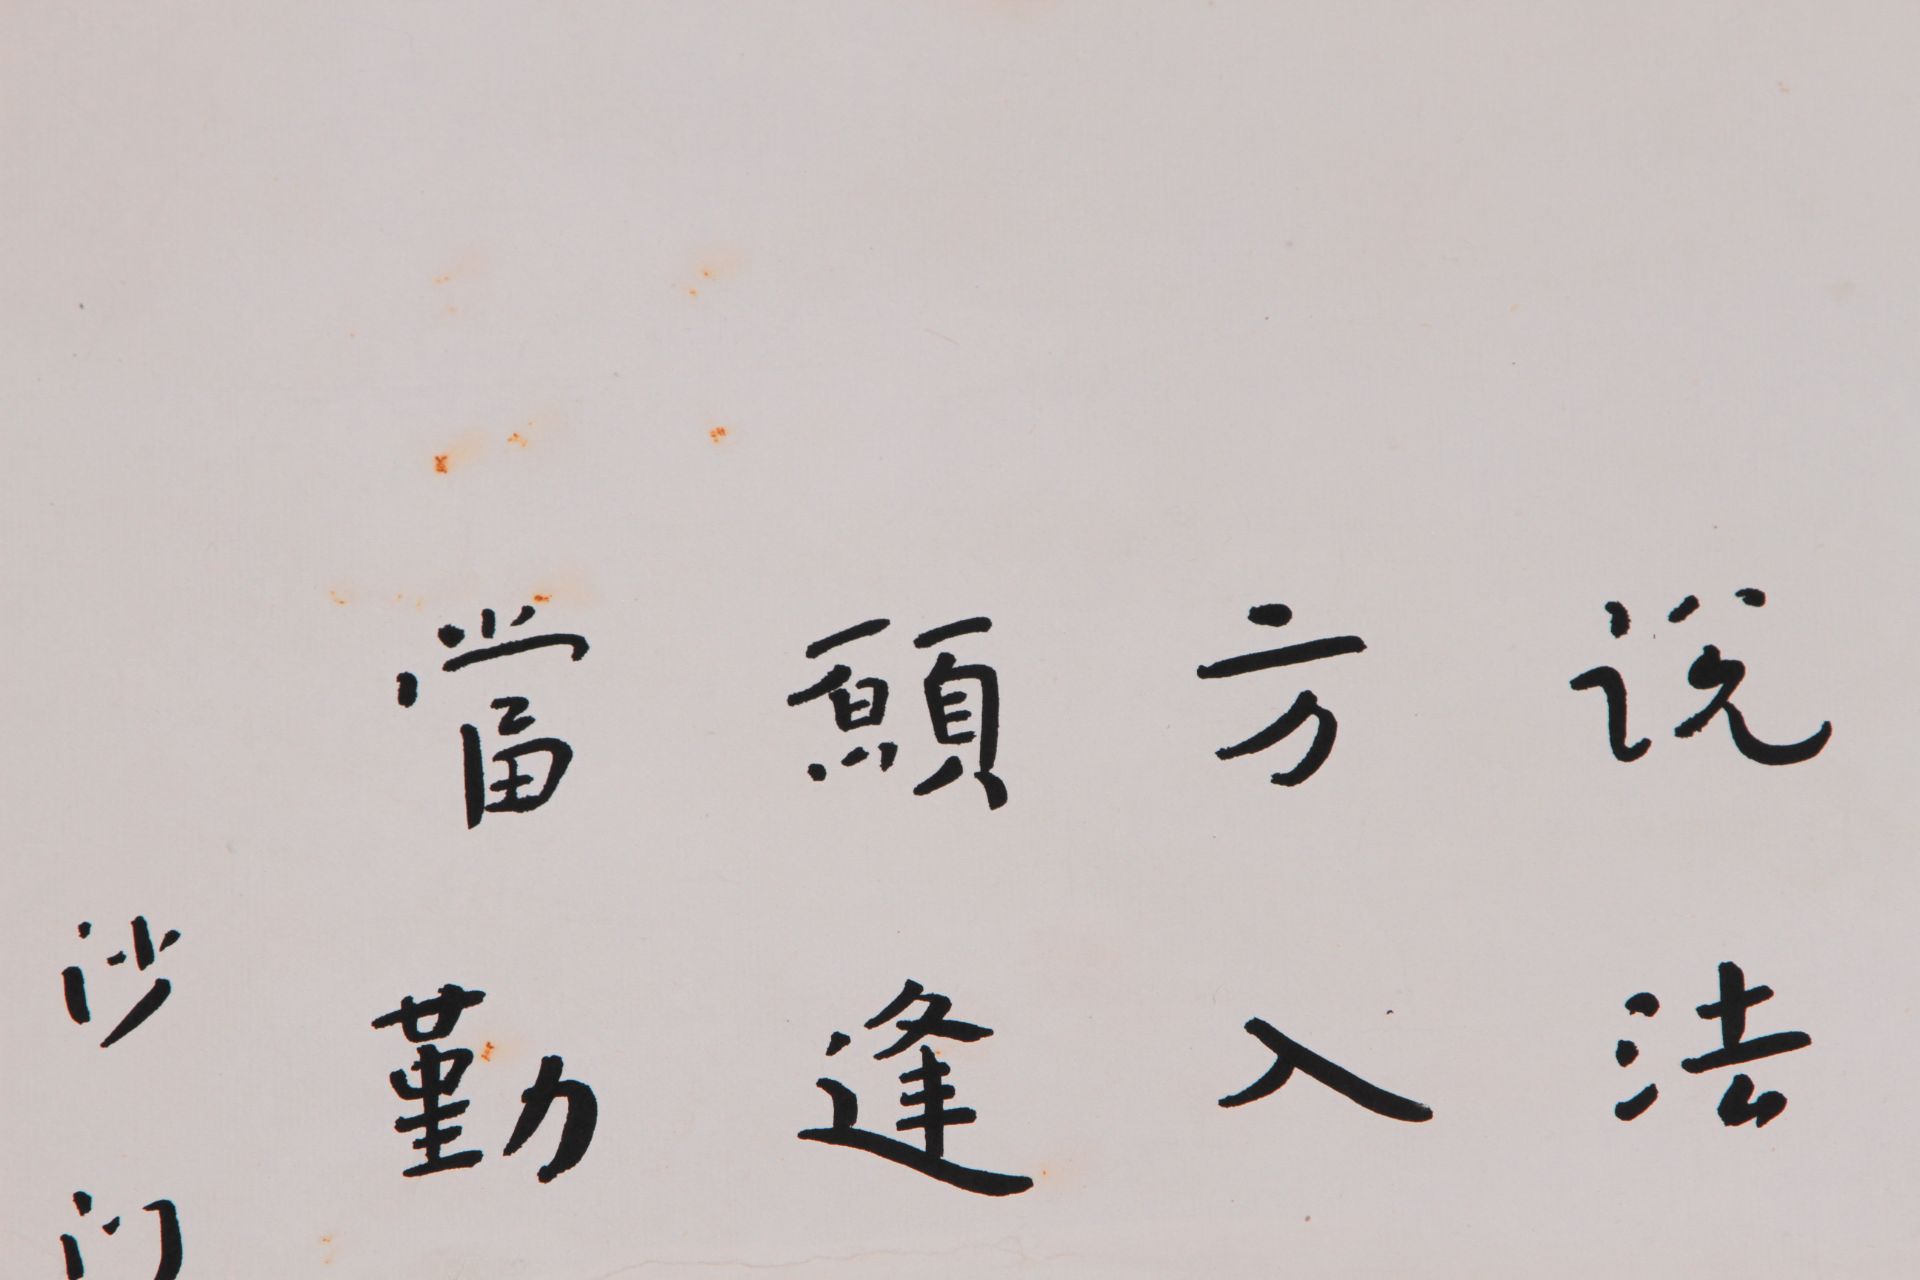 說法
方入
願逢
當勤
沙门